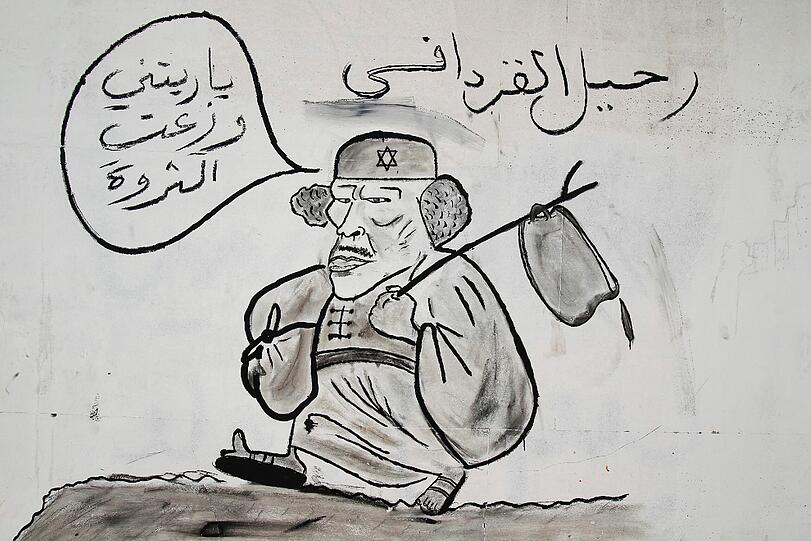 رحيل القردافي
ياريتني
وزعت
الثروة